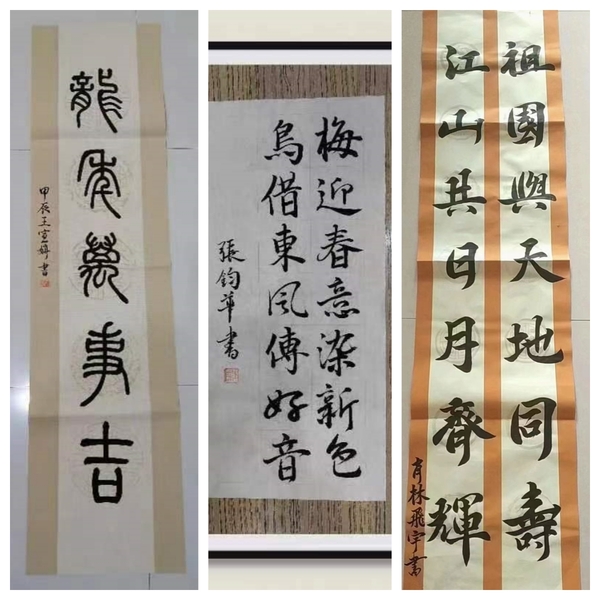 龍年萬事吉
甲辰王宣婷書
梅迎春意染新色
鳥借東風傳好音
張鈞華書
祖國與天地同壽
江山共日月齊輝
育林飛宇書